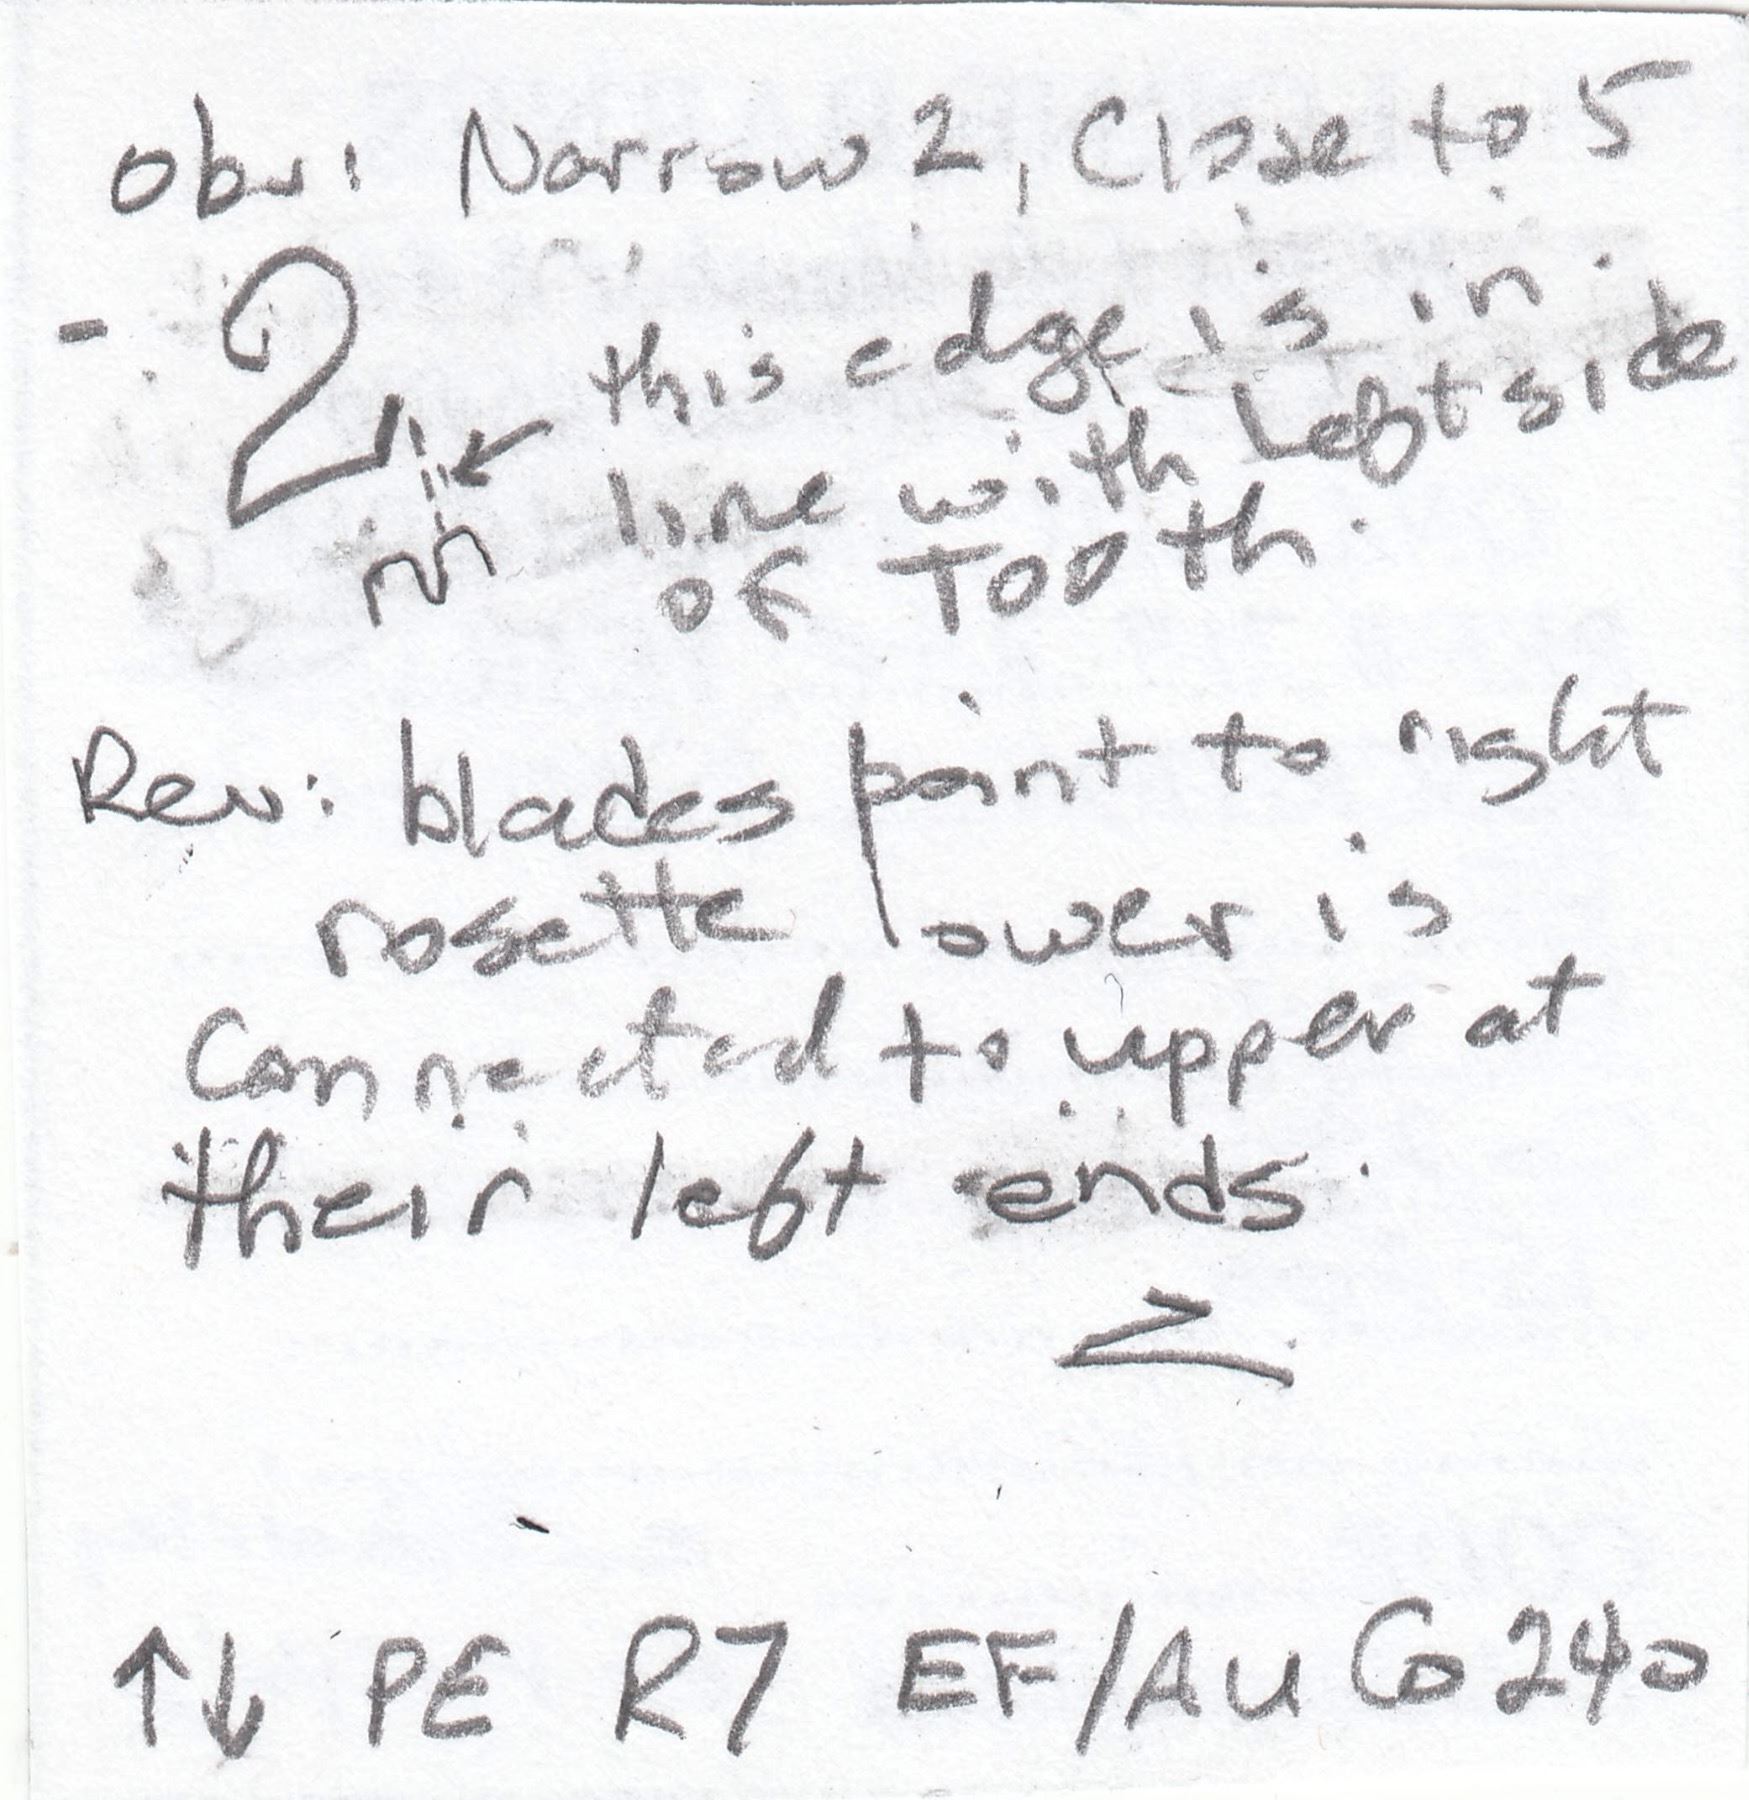 Obv: Narrow 2, Close to 5
- 2 this edge is in
line with left side
of Tooth.
Rev: blades point to right
rosette lower is
Connected to upper at
their left ends.
Z
↑↓ PE R7 EF/AU Co 240